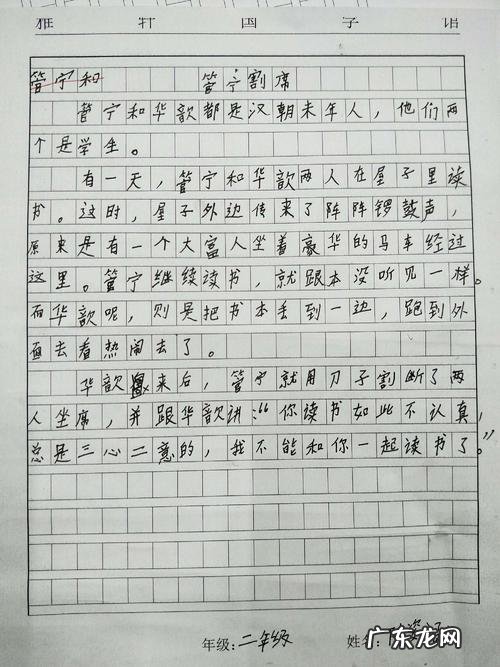 雅轩国学馆
管宁和 管宁割席
管宁和华歆都是汉朝末年人,他们两
个是学生。
有一天,管宁和华歆两人在屋子里读
书。这时,屋子外边传来了阵阵锣鼓声,
原来是有一个大富人坐着豪华的马车经过
这里。管宁继续读书,就跟本没听见一样。
而华歆呢,则是把书本丢到一边,跑到外
面去看热闹去了。
华歆回来后,管宁就用刀子割断了两
人坐席,并跟华歆讲:“你读书如此不认真,
总是三心二意的,我不能和你一起读书了。”
年级:二年级 姓名:
广东龙网